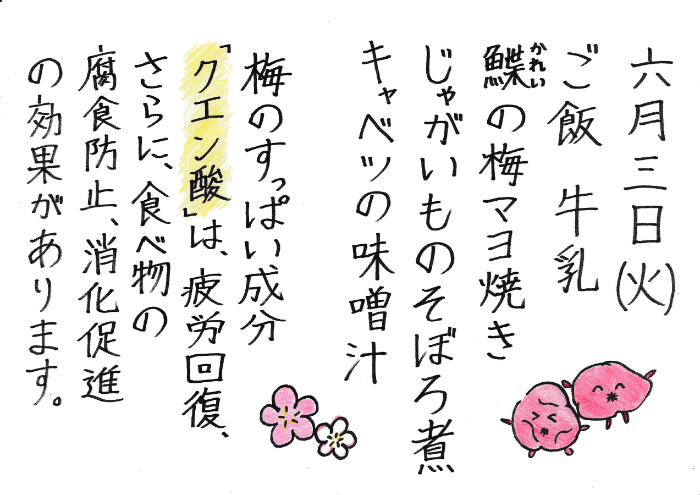 六月三日(火)
ご飯 牛乳
鰈の梅マヨ焼き
かれい
じゃがいものそぼろ煮
キャベツの味噌汁
梅のすっぱい成分
「クエン酸」は、疲労回復、
さらに、食べ物の
腐食防止、消化促進
の効果があります。